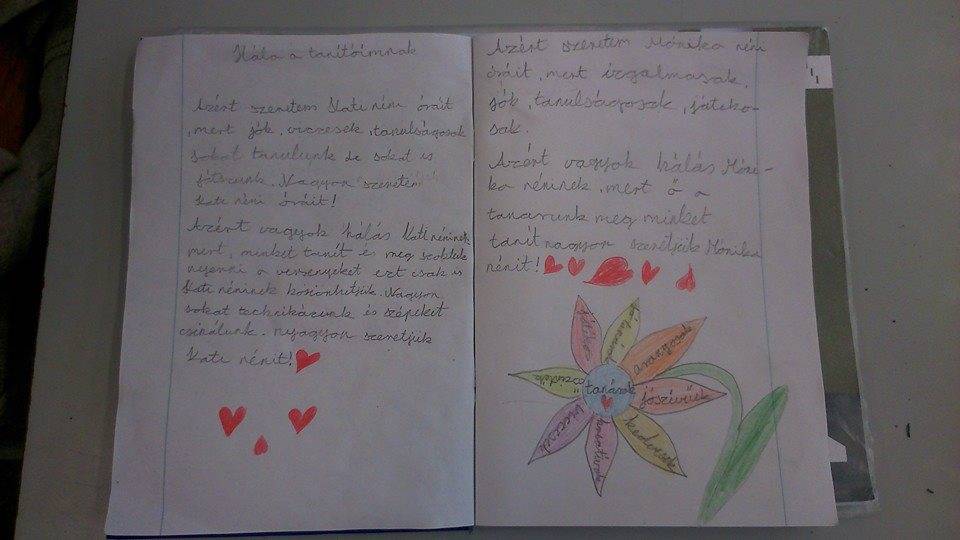 Hála a tanítóimnak
Azért szeretem Kati néni óráit
, mert jók, viccesek, tanulságosak
sokat tanulunk de sokat is
játszunk. Nagyon szeretem
Kati néni óráit!
Azért vagyok hálás Kati néninek
mert, minket tanít és meg szoktuk
nyerni a versenyeket ezt csak is
Kati néninek köszönhetjük. Nagyon
sokat technikázunk és szépeket
csinálunk. nyagyon szeretjük
Kati nénit!
Azért szeretem Mónika néni
óráit, mert izgalmasak,
jók, tanulságosak, játéko-
sak.
Azért vagyok hálás Móni-
ka néninek, mert ő a
tanarunk meg minket
tanít nagyon szeretjük Mónika
nénit!
tanárok
jószívűek
kedvesek
kreatívak
viccesek
őszinték